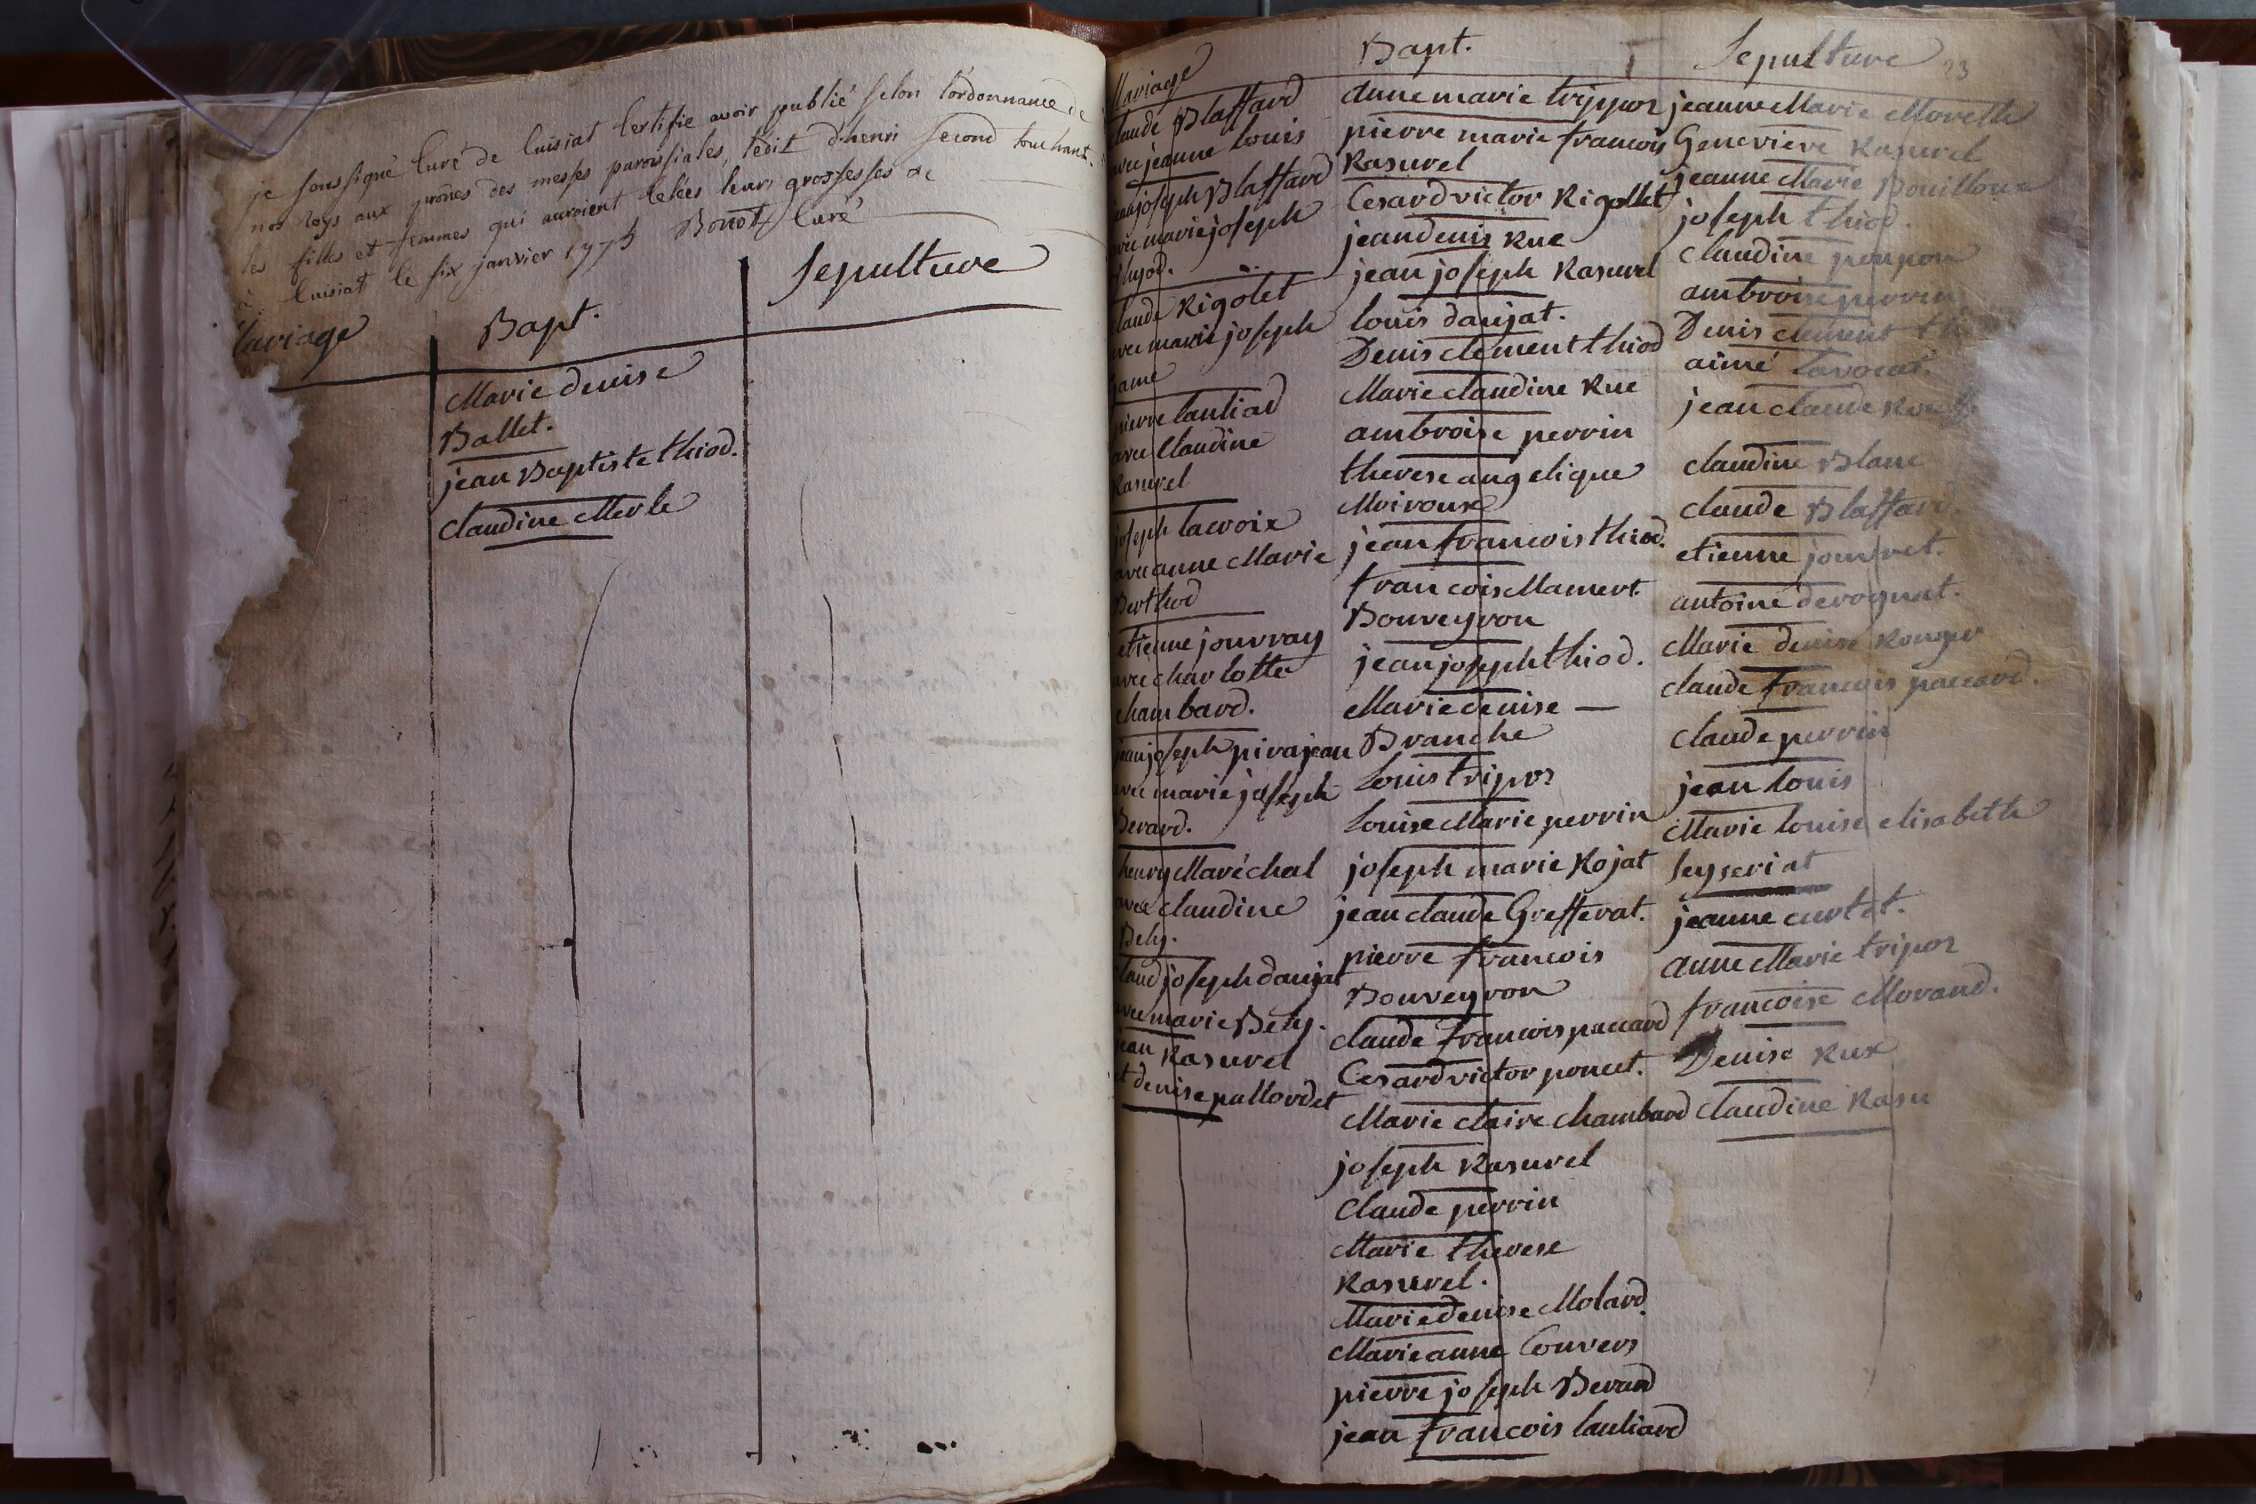 je soussigné Curé de Cuisiat Certifie avoir publié selon l'ordonnance de
nos roys aux prônes des messes paroissiales, l'edit d'henri second touchant
les filles et femmes qui auroient celées leurs grossesses &c
à Cuisiat le six janvier 1775 Bonot Curé
Mariage
Bapt.
Sepulture
Marie denise
Ballet.
jean Baptiste thiod.
Claudine Merle
Mariage
Claude Blaffard
avec jeanne louis
jean joseph Blaffard
avec marie joseph
thiod.
Claude Rigolet
avec marie joseph
pierre Cauliad
avec Claudine
Rasurel
joseph lacroix
avec anne Marie
Berthod
etienne jouvray
avec charlotte
chambard.
jean joseph pirajean
avec marie joseph
Berard.
henry Maréchal
avec claudine
Bely.
Claud joseph daujat
avec marie Bely.
jean Rasurel
et denise pallordet
Bapt.
anne marie trippoz
pierre marie francois
Rasurel
Cesard victor Rigollet
jean denis Rue
jean joseph Rasurel
louis daujat.
Denis clement thiod
Marie claudine Rue
ambroise perrin
therese angelique
Moiroux
jean francois thiod.
francois Mamert
Bouveyron
jean joseph thiod.
Marie denise —
Branche
Louis tripoz
Louise Marie perrin
joseph marie Rojat
jean claude Grefferat.
pierre francois
Bouveyron
claude francois paccard
Cesard victor poncet.
Marie claire chambard
joseph Rasurel
Claude perrin
Marie therese
Rasurel.
Marie denise Molard.
Marie anne Convers
pierre joseph Berard
jean francois Cauliard
Sepulture
23
jeanne Marie Morelle
Genevieve Rasurel
jeanne Marie Bouilloux
joseph thiod.
Claudine poupon
ambroise perrin
Denis clement
aimé lavocat.
jean claude
claudine Blanc
claude Blaffard.
etienne jouvret.
antoine derognat.
Marie denise
claude francois paccard.
claude perrin
jean louis
Marie louise elisabeth
Seyseriat
jeanne curtet.
anne Marie tripoz
francoise Morand.
Denise Rux
claudine Rasu